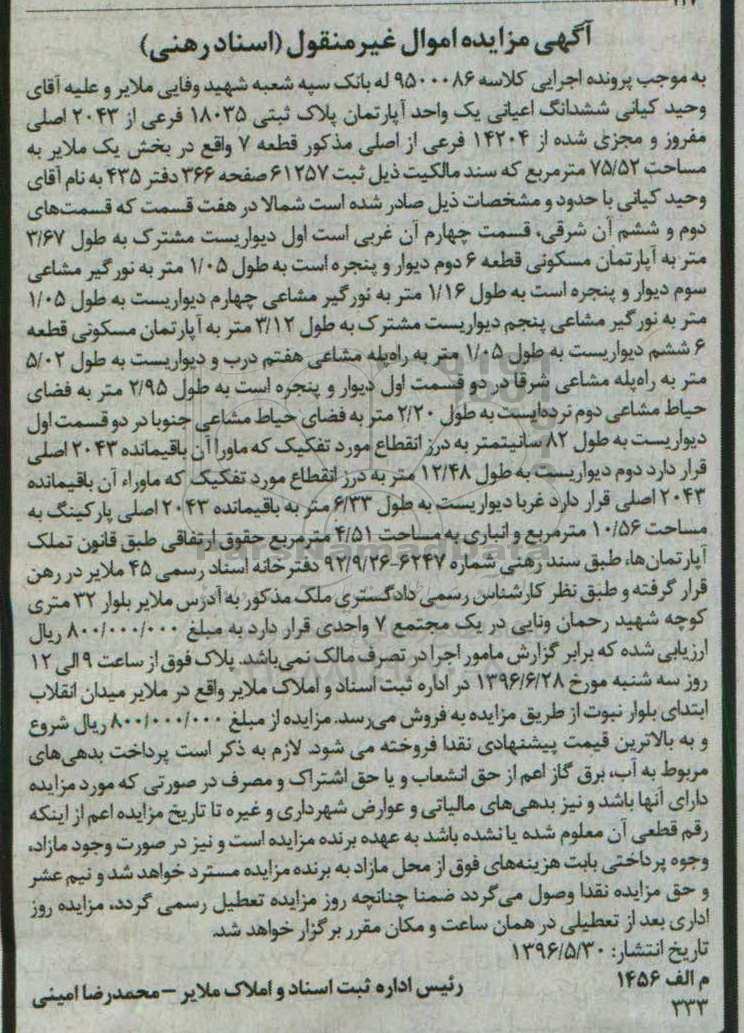 آگهی مزایده اموال غیرمنقول (اسناد رهنی)
به موجب پرونده اجرایی کلاسه ۹۵۰۰۰۸۶ له بانک سپه شعبه شهید وفایی ملایر و علیه آقای
وحید کیانی ششدانگ اعیانی یک واحد آپارتمان پلاک ثبتی ۱۸۰۳۵ فرعی از ۲۰۴۳ اصلی
مفروز و مجزی شده از ۱۴۲۰۴ فرعی از اصلی مذکور قطعه ۷ واقع در بخش یک ملایر به
مساحت ۷۵/۵۲ مترمربع که سند مالکیت ذیل ثبت ۶۱۲۵۷ صفحه ۳۶۶ دفتر ۴۳۵ به نام آقای
وحید کیانی با حدود و مشخصات ذیل صادر شده است شمالا در هفت قسمت که قسمت‌های
دوم و ششم آن شرقی، قسمت چهارم آن غربی است اول دیواریست مشترک به طول ۳/۶۷
متر به آپارتمان مسکونی قطعه ۶ دوم دیوار و پنجره است به طول ۱/۰۵ متر به نورگیر مشاعی
سوم دیوار و پنجره است به طول ۱/۱۶ متر به نورگیر مشاعی چهارم دیواریست به طول ۱/۰۵
متر به نورگیر مشاعی پنجم دیواریست مشترک به طول ۳/۱۲ متر به آپارتمان مسکونی قطعه
۶ ششم دیواریست به طول ۱/۰۵ متر به راه‌پله مشاعی هفتم درب و دیواریست به طول ۵/۰۲
متر به راه‌پله مشاعی شرقا در دو قسمت اول دیوار و پنجره است به طول ۲/۹۵ متر به فضای
حیاط مشاعی دوم نرده‌ایست به طول ۲/۲۰ متر به فضای حیاط مشاعی جنوبا در دو قسمت اول
دیواریست به طول ۸۲ سانیتمتر به درز انقطاع مورد تفکیک که ماورا آن باقیمانده ۲۰۴۳ اصلی
قرار دارد دوم دیواریست به طول ۱۲/۴۸ متر به درز انقطاع مورد تفکیک که ماوراء آن باقیمانده
۲۰۴۳ اصلی قرار دارد غربا دیواریست به طول ۶/۳۳ متر به باقیمانده ۲۰۴۳ اصلی پارکینگ به
مساحت ۱۰/۵۶ مترمربع و انباری به مساحت ۴/۵۱ مترمربع حقوق ارتفاقی طبق قانون تملک
آپارتمان‌ها، طبق سند رهنی شماره ۶۲۴۷-۹۲/۹/۲۶ دفترخانه اسناد رسمی ۴۵ ملایر در رهن
قرار گرفته و طبق نظر کارشناس رسمی دادگستری ملک مذکور به آدرس ملایر بلوار ۳۲ متری
کوچه شهید رحمان ونایی در یک مجتمع ۷ واحدی قرار دارد به مبلغ ۸۰۰/۰۰۰/۰۰۰ ریال
ارزیابی شده که برابر گزارش مامور اجرا در تصرف مالک نمی‌باشد. پلاک فوق از ساعت ۹ الی ۱۲
روز سه شنبه مورخ ۱۳۹۶/۶/۲۸ در اداره ثبت اسناد و املاک ملایر واقع در ملایر میدان انقلاب
ابتدای بلوار نبوت از طریق مزایده به فروش می‌رسد. مزایده از مبلغ ۸۰۰/۰۰۰/۰۰۰ ریال شروع
و به بالاترین قیمت پیشنهادی نقدا فروخته می شود. لازم به ذکر است پرداخت بدهی‌های
مربوط به آب، برق گاز اعم از حق انشعاب و یا حق اشتراک و مصرف در صورتی که مورد مزایده
دارای آنها باشد و نیز بدهی‌های مالیاتی و عوارض شهرداری و غیره تا تاریخ مزایده اعم از اینکه
رقم قطعی آن معلوم شده یا نشده باشد به عهده برنده مزایده است و نیز در صورت وجود مازاد،
وجوه پرداختی بابت هزینه‌های فوق از محل مازاد به برنده مزایده مسترد خواهد شد و نیم عشر
و حق مزایده نقدا وصول می‌گردد ضمنا چنانچه روز مزایده تعطیل رسمی گردد، مزایده روز
اداری بعد از تعطیلی در همان ساعت و مکان مقرر برگزار خواهد شد.
تاریخ انتشار: ۱۳۹۶/۵/۳۰
م الف ۱۴۵۶
رئیس اداره ثبت اسناد و املاک ملایر – محمدرضا امینی
۳۳۳